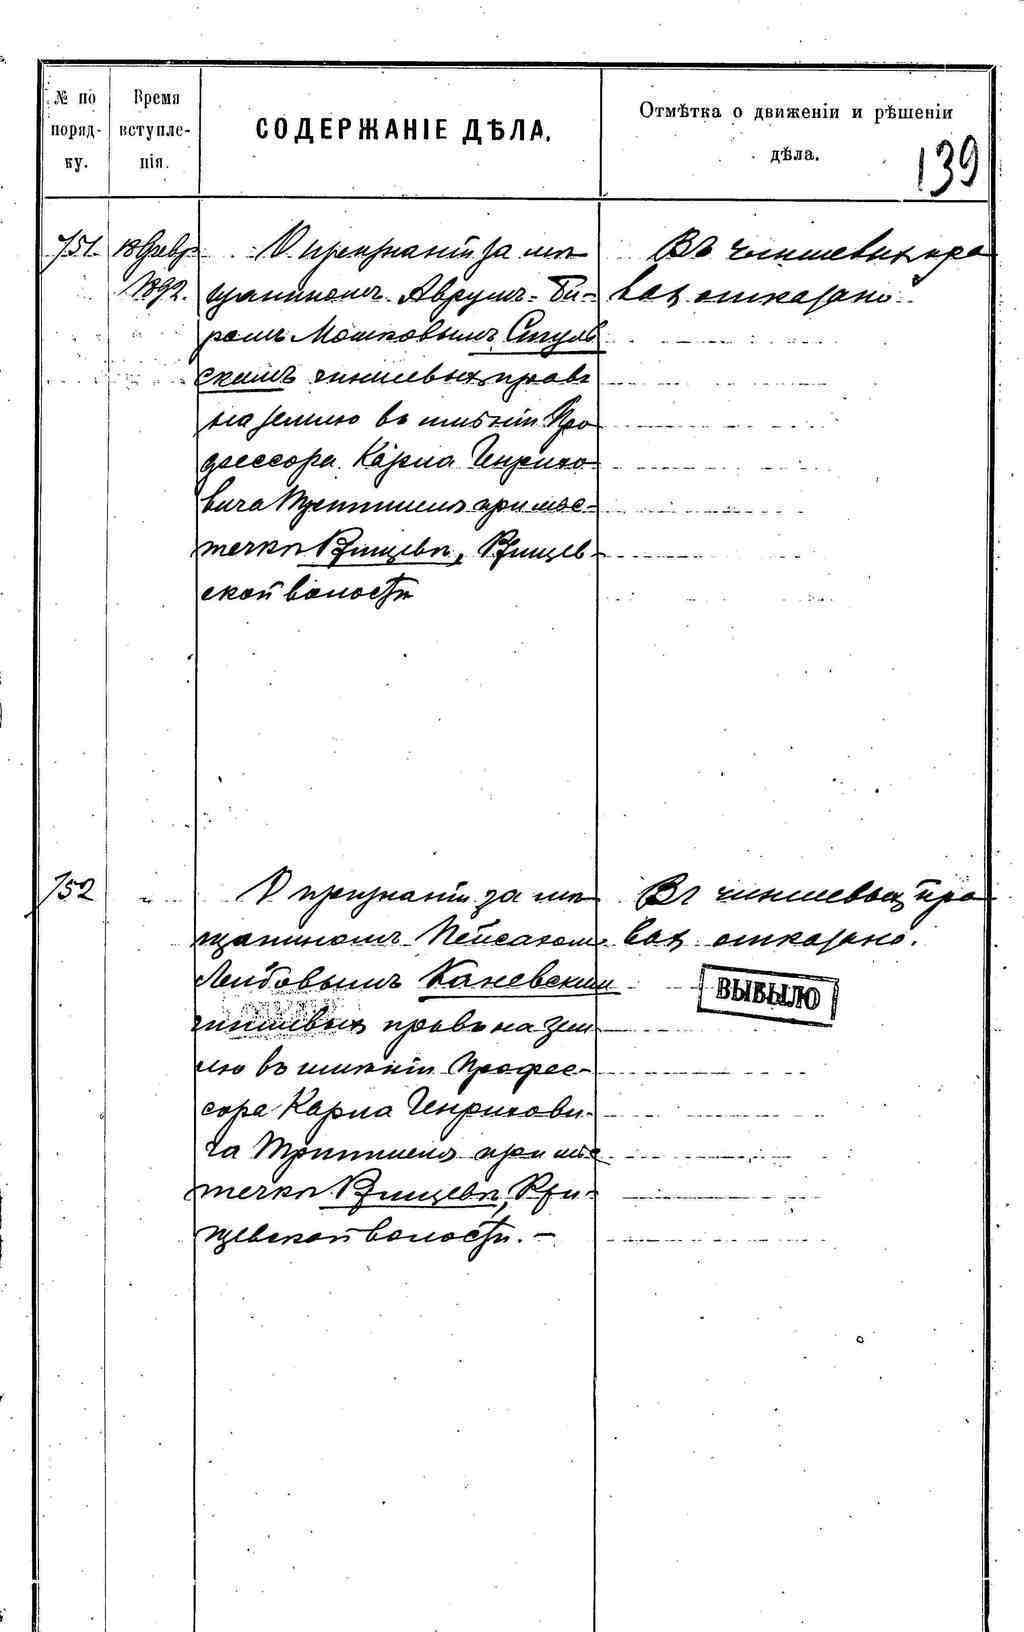 № по поряд- ку.
Время вступле- нія.
СОДЕРЖАНІЕ ДѢЛА.
Отмѣтка о движеніи и рѣшеніи дѣла.
139
751.
18 Февр
1892.
О признаніи за мѣ
щаниномъ Аврумъ-Би-
ромъ Мошковымъ Стуль
скимъ чиншевыхъ правъ
на землю въ имѣніи Про
фессора Карла Генрихо
вича при мѣс-
течкѣ Ржищевѣ, Ржищев-
ской волости
Въ чиншевыхъ пра
вах отказано.
752
"
О признаніи за мѣ
щаниномъ Пейсахомъ
Лейбовымъ Каневскимъ
чиншевыхъ правъ на зем
лю въ имѣніи Профес-
сора Карла Генрихови-
ча при мѣс
течкѣ Ржищевѣ, Ржи-
щевской волости. –
Въ чиншевыхъ пра
вах отказано.
ВЫБЫЛО